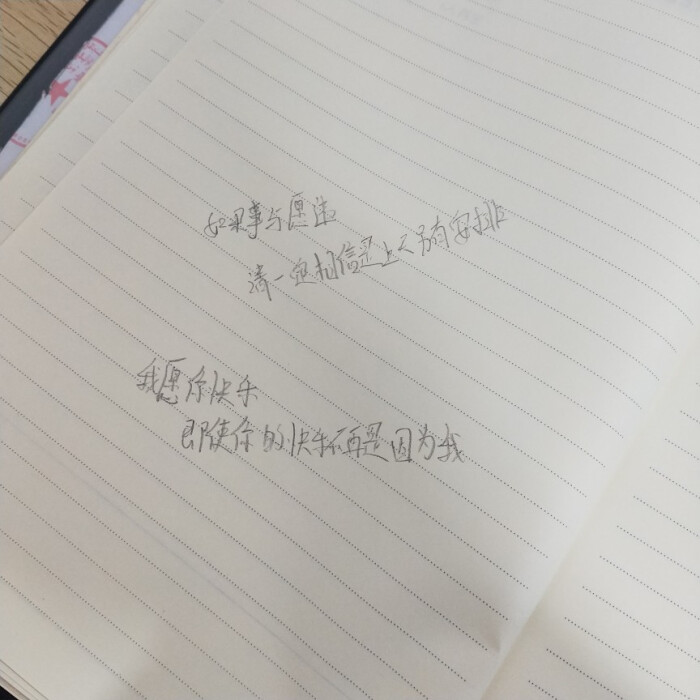 如果事与愿违
请一定相信是上天另有安排
我愿你快乐
即使你的快乐不再是因为我